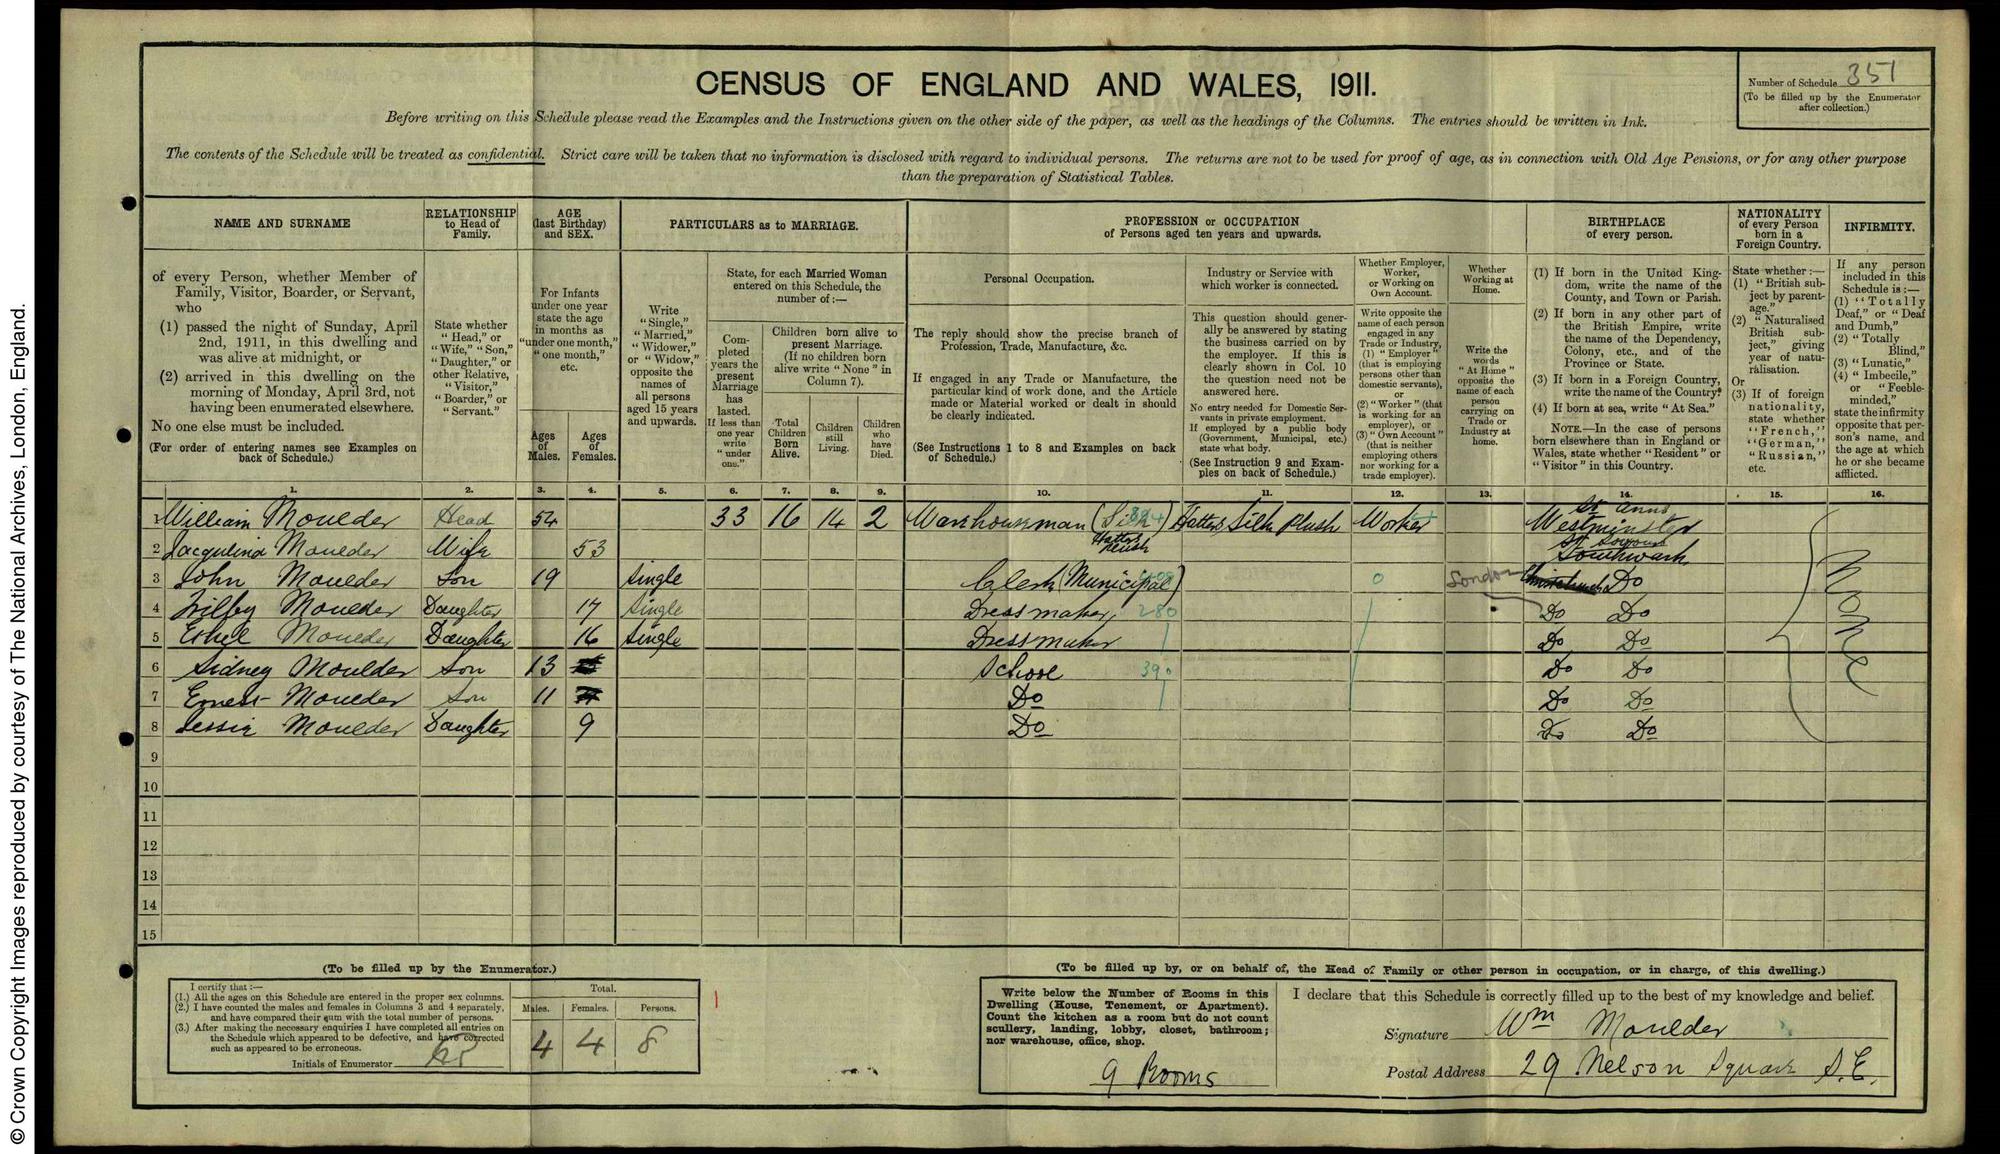 © Crown Copyright Images reproduced by courtesy of The National Archives, London, England.
CENSUS OF ENGLAND AND WALES, 1911.
Number of Schedule 351
(To be filled up by the Enumerator
after collection.)
Before writing on this Schedule please read the Examples and the Instructions given on the other side of the paper, as well as the headings of the Columns. The entries should be written in Ink.
The contents of the Schedule will be treated as confidential. Strict care will be taken that no information is disclosed with regard to individual persons. The returns are not to be used for proof of age, as in connection with Old Age Pensions, or for any other purpose
than the preparation of Statistical Tables.
NAME AND SURNAME
of every Person, whether Member of
Family, Visitor, Boarder, or Servant,
who
(1) passed the night of Sunday, April
2nd, 1911, in this dwelling and
was alive at midnight, or
(2) arrived in this dwelling on the
morning of Monday, April 3rd, not
having been enumerated elsewhere.
No one else must be included.
(For order of entering names see Examples on
back of Schedule.)
RELATIONSHIP
to Head of
Family.
State whether
"Head," or
"Wife," "Son,"
"Daughter," or
other Relative,
"Visitor,"
"Boarder," or
"Servant."
AGE
(last Birthday)
and SEX.
For Infants
under one year
state the age
in months as
"under one month,"
"one month,"
etc.
Ages
of
Males.
Ages
of
Females.
PARTICULARS as to MARRIAGE.
Write
"Single,"
"Married,"
"Widower,"
or "Widow,"
opposite the
names of
all persons
aged 15 years
and upwards.
State, for each Married Woman
entered on this Schedule, the
number of:—
Com-
pleted
years the
present
Marriage
has
lasted.
If less than
one year
write
"under
one."
Children born alive to
present Marriage.
(If no children born
alive write "None" in
Column 7).
Total
Children
Born
Alive.
Children
still
Living.
Children
who
have
Died.
PROFESSION or OCCUPATION
of Persons aged ten years and upwards.
Personal Occupation.
The reply should show the precise branch of
Profession, Trade, Manufacture, &c.
If engaged in any Trade or Manufacture, the
particular kind of work done, and the Article
made or Material worked or dealt in should
be clearly indicated.
(See Instructions 1 to 8 and Examples on back
of Schedule.)
Industry or Service with
which worker is connected.
This question should gener-
ally be answered by stating
the business carried on by
the employer. If this is
clearly shown in Col. 10
the question need not be
answered here.
No entry needed for Domestic Ser-
vants in private employment.
If employed by a public body
(Government, Municipal, etc.)
state what body.
(See Instruction 9 and Exam-
ples on back of Schedule.)
Whether Employer,
Worker,
or Working on
Own Account.
Write opposite the
name of each person
engaged in any
Trade or Industry,
(1) "Employer"
(that is employing
persons other than
domestic servants),
or
(2) "Worker" (that
is working for an
employer), or
(3) "Own Account"
(that is neither
employing others
nor working for a
trade employer).
Whether
Working at
Home.
Write the
words
"At Home"
opposite the
name of each
person
carrying on
Trade or
Industry at
home.
BIRTHPLACE
of every person.
(1) If born in the United King-
dom, write the name of the
County, and Town or Parish.
(2) If born in any other part of
the British Empire, write
the name of the Dependency,
Colony, etc., and of the
Province or State.
(3) If born in a Foreign Country,
write the name of the Country.
(4) If born at sea, write "At Sea."
NOTE.—In the case of persons
born elsewhere than in England or
Wales, state whether "Resident" or
"Visitor" in this Country.
NATIONALITY
of every Person
born in a
Foreign Country.
State whether:—
(1) "British sub-
ject by parent-
age."
(2) "Naturalised
British sub-
ject," giving
year of natu-
ralisation.
Or
(3) If of foreign
nationality,
state whether
"French,"
"German,"
"Russian,"
etc.
INFIRMITY.
If any person
included in this
Schedule is:—
(1) "Totally
Deaf," or "Deaf
and Dumb,"
(2) "Totally
Blind,"
(3) "Lunatic,"
(4) "Imbecile,"
or "Feeble-
minded,"
state the infirmity
opposite that per-
son's name, and
the age at which
he or she became
afflicted.
1. 2. 3. 4. 5. 6. 7. 8. 9. 10. 11. 12. 13. 14. 15. 16.
1 William Moulder Head 54 33 16 14 2 Warehouseman (Silk) Hatters Silk Plush Worker St Anns Westminster
Hatters Plush
2 Jacqulina Moulder Wife 53 Southwark
3 John Moulder Son 19 Single Clerk (Municipal) 0 London Christchurch Do
4 Lilby Moulder Daughter 17 Single Dressmaker 280 Do Do
5 Ethel Moulder Daughter 16 Single Dressmaker Do Do
6 Sidney Moulder Son 13 School 390 Do Do
7 Ernest Moulder Son 11 Do Do Do
8 Jessie Moulder Daughter 9 Do Do Do
None
9
10
11
12
13
14
15
(To be filled up by the Enumerator.)
I certify that:—
(1.) All the ages on this Schedule are entered in the proper sex columns.
(2.) I have counted the males and females in Columns 3 and 4 separately,
and have compared their sum with the total number of persons.
(3.) After making the necessary enquiries I have completed all entries on
the Schedule which appeared to be defective, and have corrected
such as appeared to be erroneous.
Initials of Enumerator
Total.
Males. Females. Persons.
4 4 8
(To be filled up by, or on behalf of, the Head of Family or other person in occupation, or in charge, of this dwelling.)
Write below the Number of Rooms in this
Dwelling (House, Tenement, or Apartment).
Count the kitchen as a room but do not count
scullery, landing, lobby, closet, bathroom;
nor warehouse, office, shop.
9 Rooms
I declare that this Schedule is correctly filled up to the best of my knowledge and belief.
Signature Wm Moulder
Postal Address 29 Nelson Square S.E.